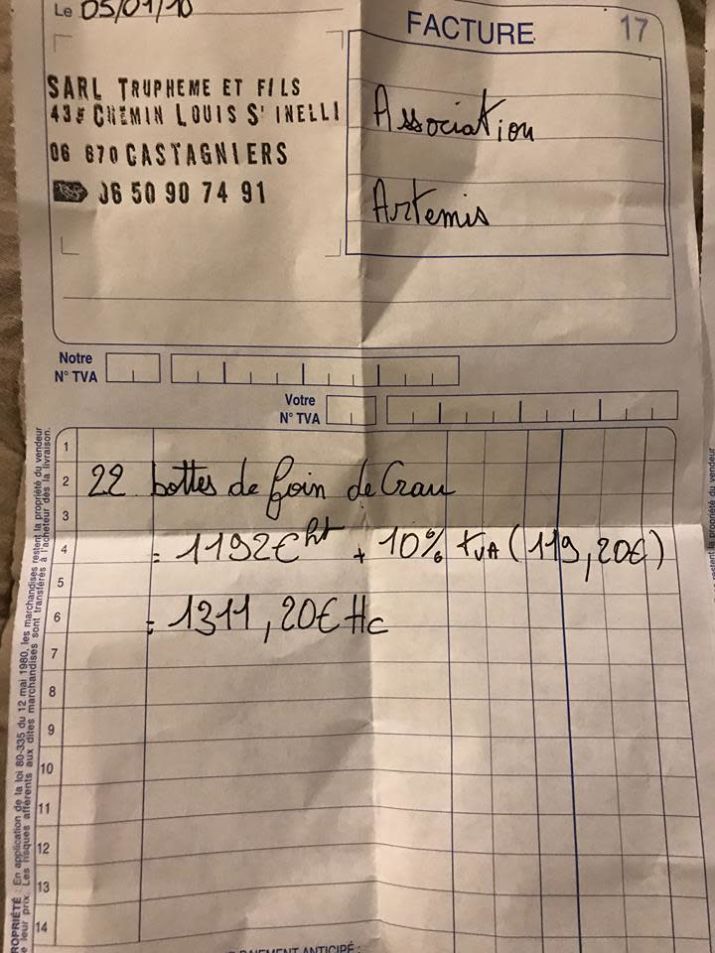 Le 05/01/10
FACTURE 17
SARL TRUPHEME ET FILS
CHEMIN LOUIS S' INELLI
06 670 CASTAGNIERS
06 50 90 74 91
Association
Artemis
Notre
N° TVA
Votre
N° TVA
1
2 22 bottes de foin de Crau
3
4 = 1192€ ht + 10% TVA (119,20€)
5
6 = 1311,20€ ttc
7
8
9
10
11
12
13
14
En application de la loi 80-335 du 12 mai 1980, les marchandises restent la propriété du vendeur
leur prix. Les risques afférents aux dites marchandises sont transférés à l'acheteur dès la livraison.